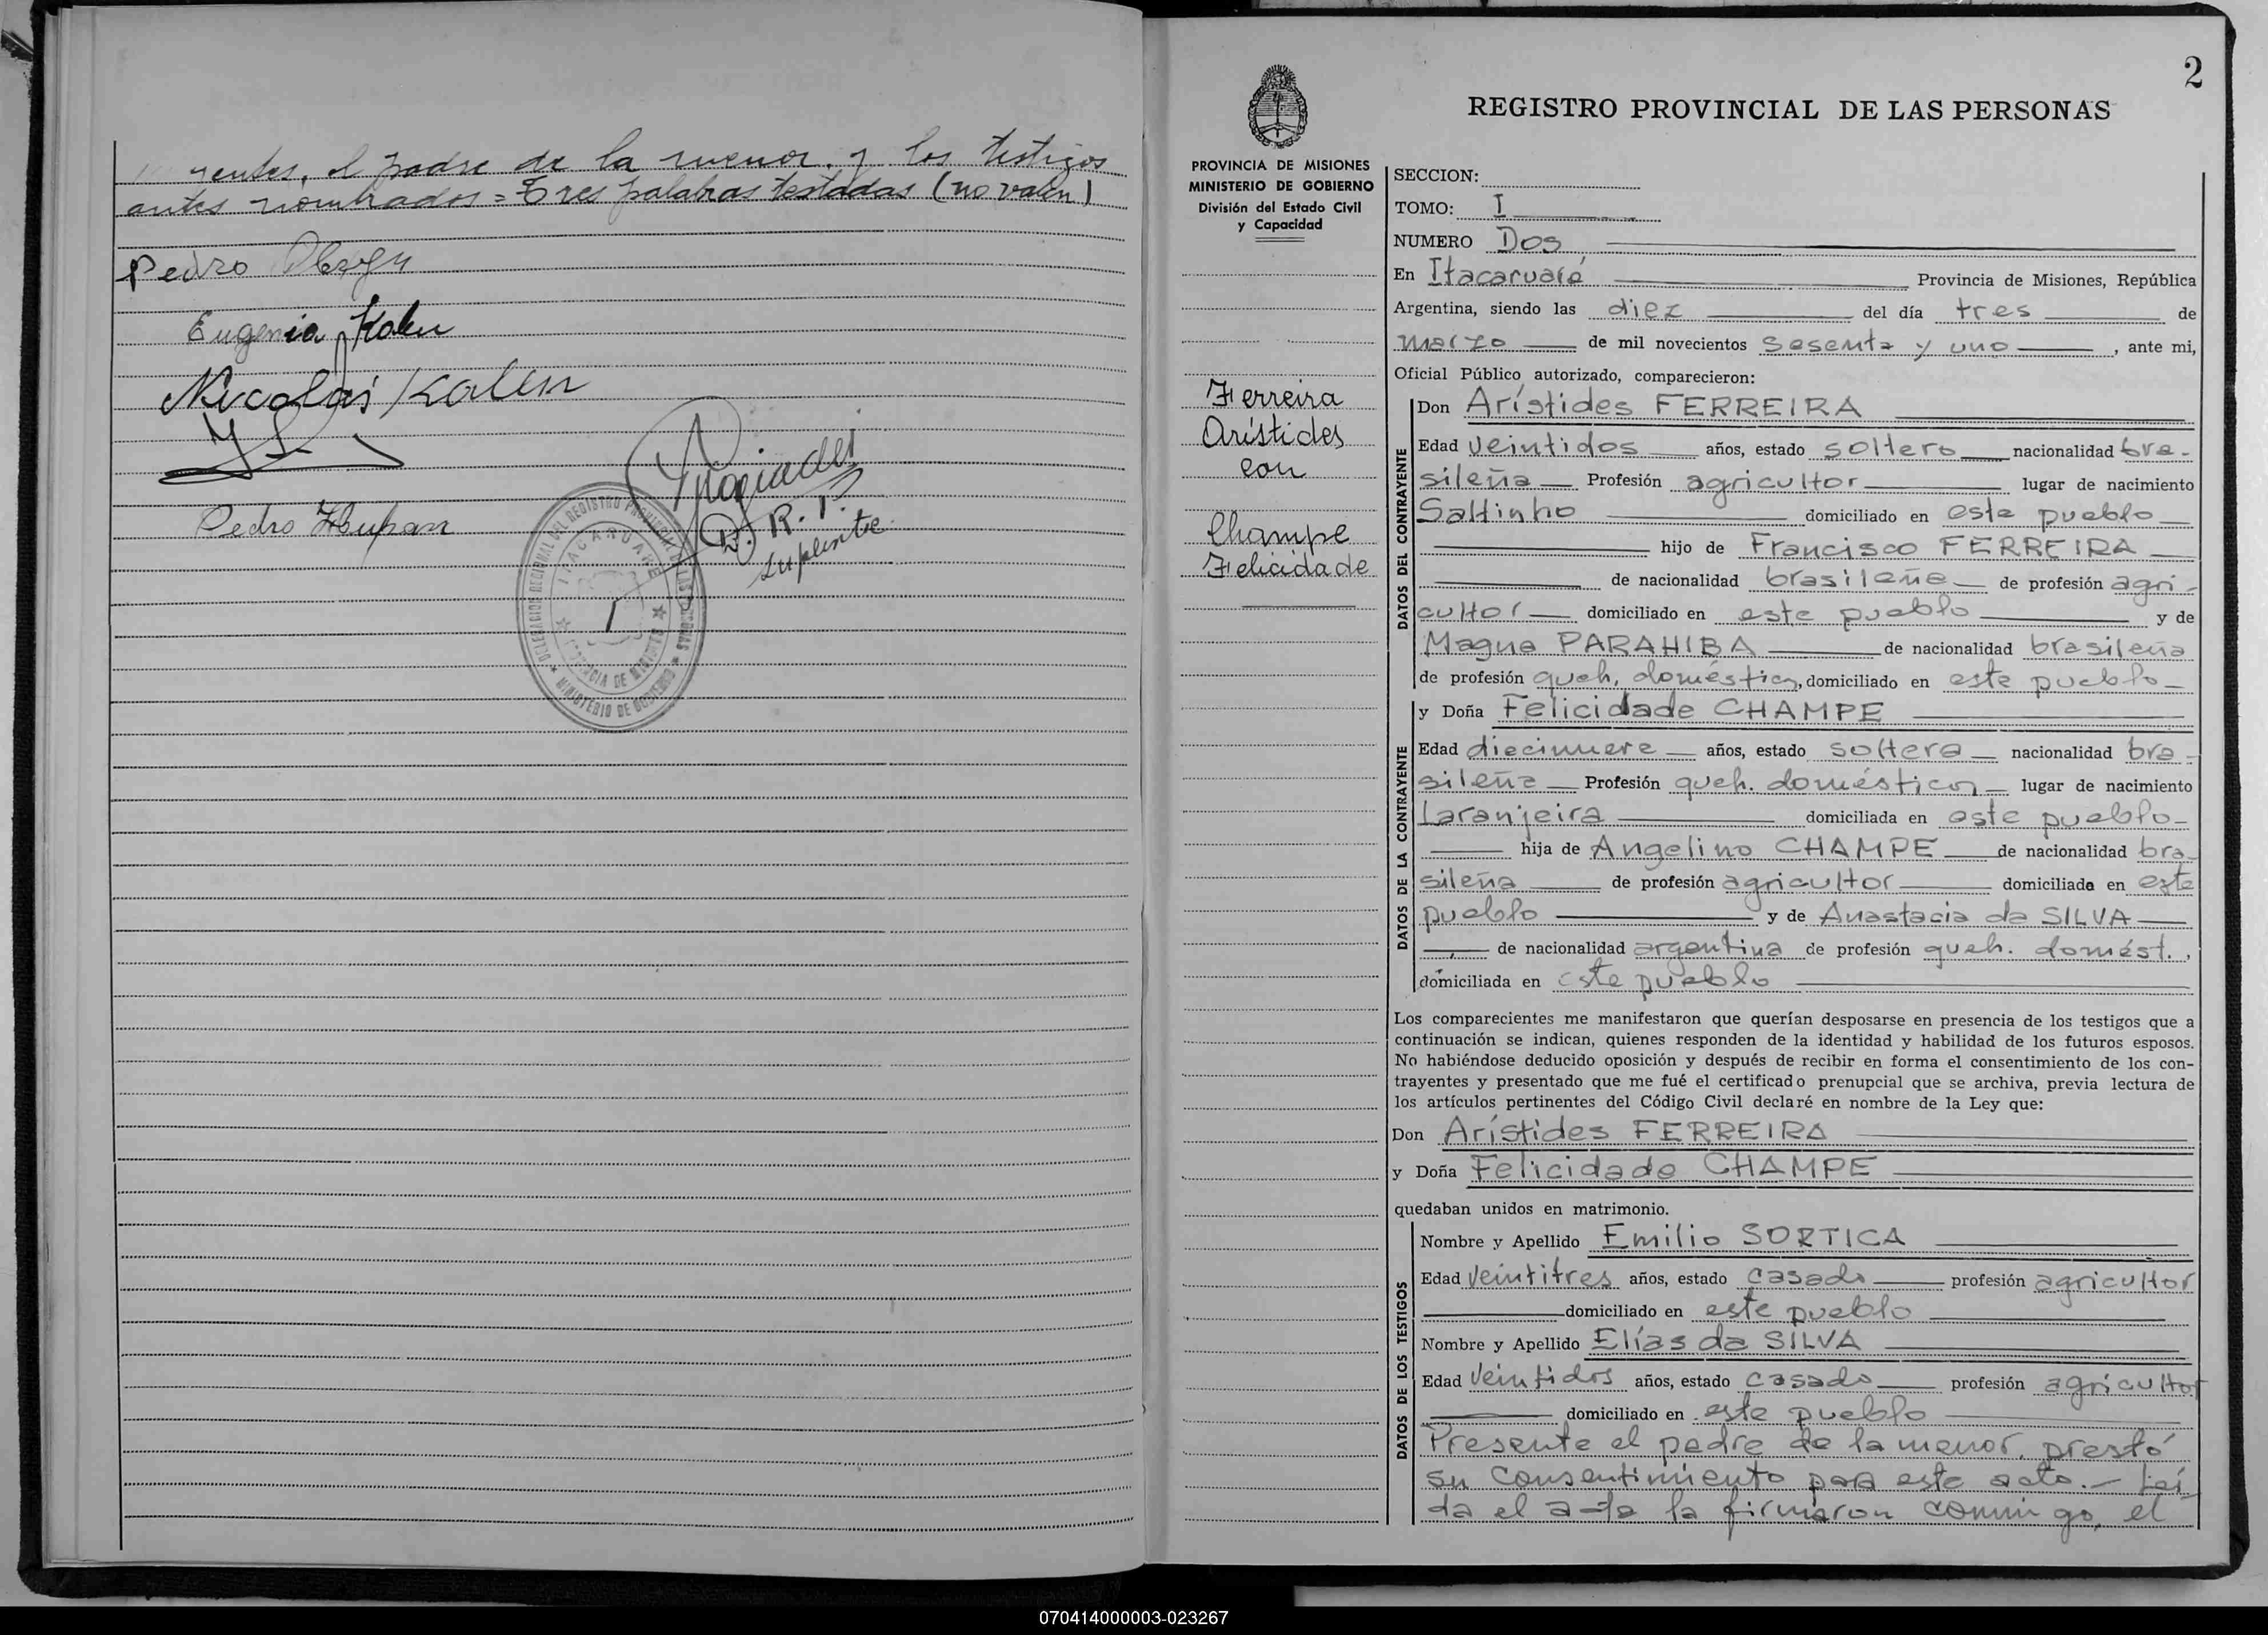 yentes, el padre de la menor, y los testigos
antes nombrados = Tres palabras testadas (no valen)
Pedro
Eugenia
Nicolás
Pedro
D. R. P.
suplente
DELEGACION SECCIONAL DEL REGISTRO PROVINCIAL DE LAS PERSONAS
ITACARUARE
PROVINCIA DE MISIONES
MINISTERIO DE GOBIERNO
2
REGISTRO PROVINCIAL DE LAS PERSONAS
PROVINCIA DE MISIONES
MINISTERIO DE GOBIERNO
División del Estado Civil
y Capacidad
Ferreira
Arístides
con
Champe
Felicidade
SECCION:
TOMO: I
NUMERO Dos
En Itacaruaré Provincia de Misiones, República
Argentina, siendo las diez del día tres de
marzo de mil novecientos sesenta y uno, ante mi,
Oficial Público autorizado, comparecieron:
DATOS DEL CONTRAYENTE
Don Arístides FERREIRA
Edad veintidos años, estado soltero nacionalidad bra-
sileña Profesión agricultor lugar de nacimiento
Saltinho domiciliado en este pueblo
hijo de Francisco FERREIRA
de nacionalidad brasileña de profesión agri-
cultor domiciliado en este pueblo y de
Magna PARAHIBA de nacionalidad brasileña
de profesión queh. domésticos, domiciliado en este pueblo
DATOS DE LA CONTRAYENTE
y Doña Felicidade CHAMPE
Edad diecinueve años, estado soltera nacionalidad bra-
sileña Profesión queh. domésticos lugar de nacimiento
Laranjeira domiciliada en este pueblo
hija de Angelino CHAMPE de nacionalidad bra-
sileña de profesión agricultor domiciliado en este
pueblo y de Anastacia da SILVA
de nacionalidad argentina de profesión queh. domést.,
domiciliada en este pueblo
Los comparecientes me manifestaron que querían desposarse en presencia de los testigos que a
continuación se indican, quienes responden de la identidad y habilidad de los futuros esposos.
No habiéndose deducido oposición y después de recibir en forma el consentimiento de los con-
trayentes y presentado que me fué el certificado prenupcial que se archiva, previa lectura de
los artículos pertinentes del Código Civil declaré en nombre de la Ley que:
Don Arístides FERREIRA
y Doña Felicidade CHAMPE
quedaban unidos en matrimonio.
DATOS DE LOS TESTIGOS
Nombre y Apellido Emilio SORTICA
Edad veintitres años, estado casado profesión agricultor
domiciliado en este pueblo
Nombre y Apellido Elías da SILVA
Edad veintidos años, estado casado profesión agricultor
domiciliado en este pueblo
Presente el padre de la menor, prestó
su consentimiento para este acto.- Leí-
da el acta la firmaron conmigo, el
070414000003-023267